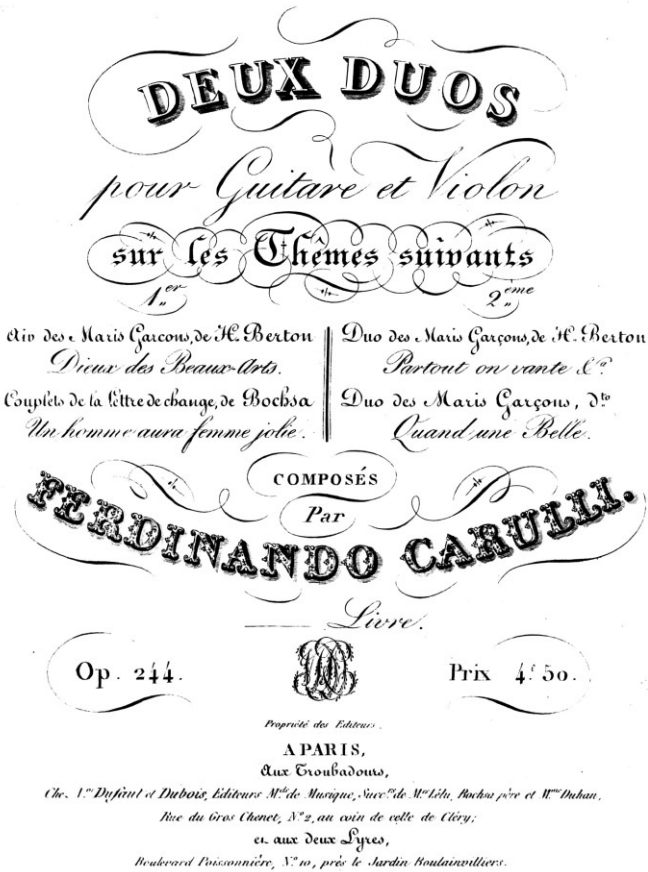 DEUX DUOS
pour Guitare et Violon
sur les Thêmes suivants
1.er
Air des Maris Garcons, de H. Berton
Dieux des Beaux-Arts.
Couplets de la Lettre de change, de Bochsa
Un homme aura femme jolie.
2.ème
Duo des Maris Garçons, de H. Berton
Partout on vante &.a
Duo des Maris Garçons, d.to
Quand une Belle.
COMPOSÉS
Par
FERDINANDO CARULLI.
Livre.
Op. 244.
Prix 4.f 50.
Propriété des Editeurs.
A PARIS,
Aux Troubadours,
Chez Dufaut et Dubois, Editeurs M.ds de Musique, Succ.rs de M.me Lélu, Bochsa père et M.me Duhan,
Rue du Gros Chenet, N.o 2, au coin de celle de Cléry;
et aux deux Lyres,
Boulevard Poissonnière, N.o 10, près le Jardin Boulainvilliers.